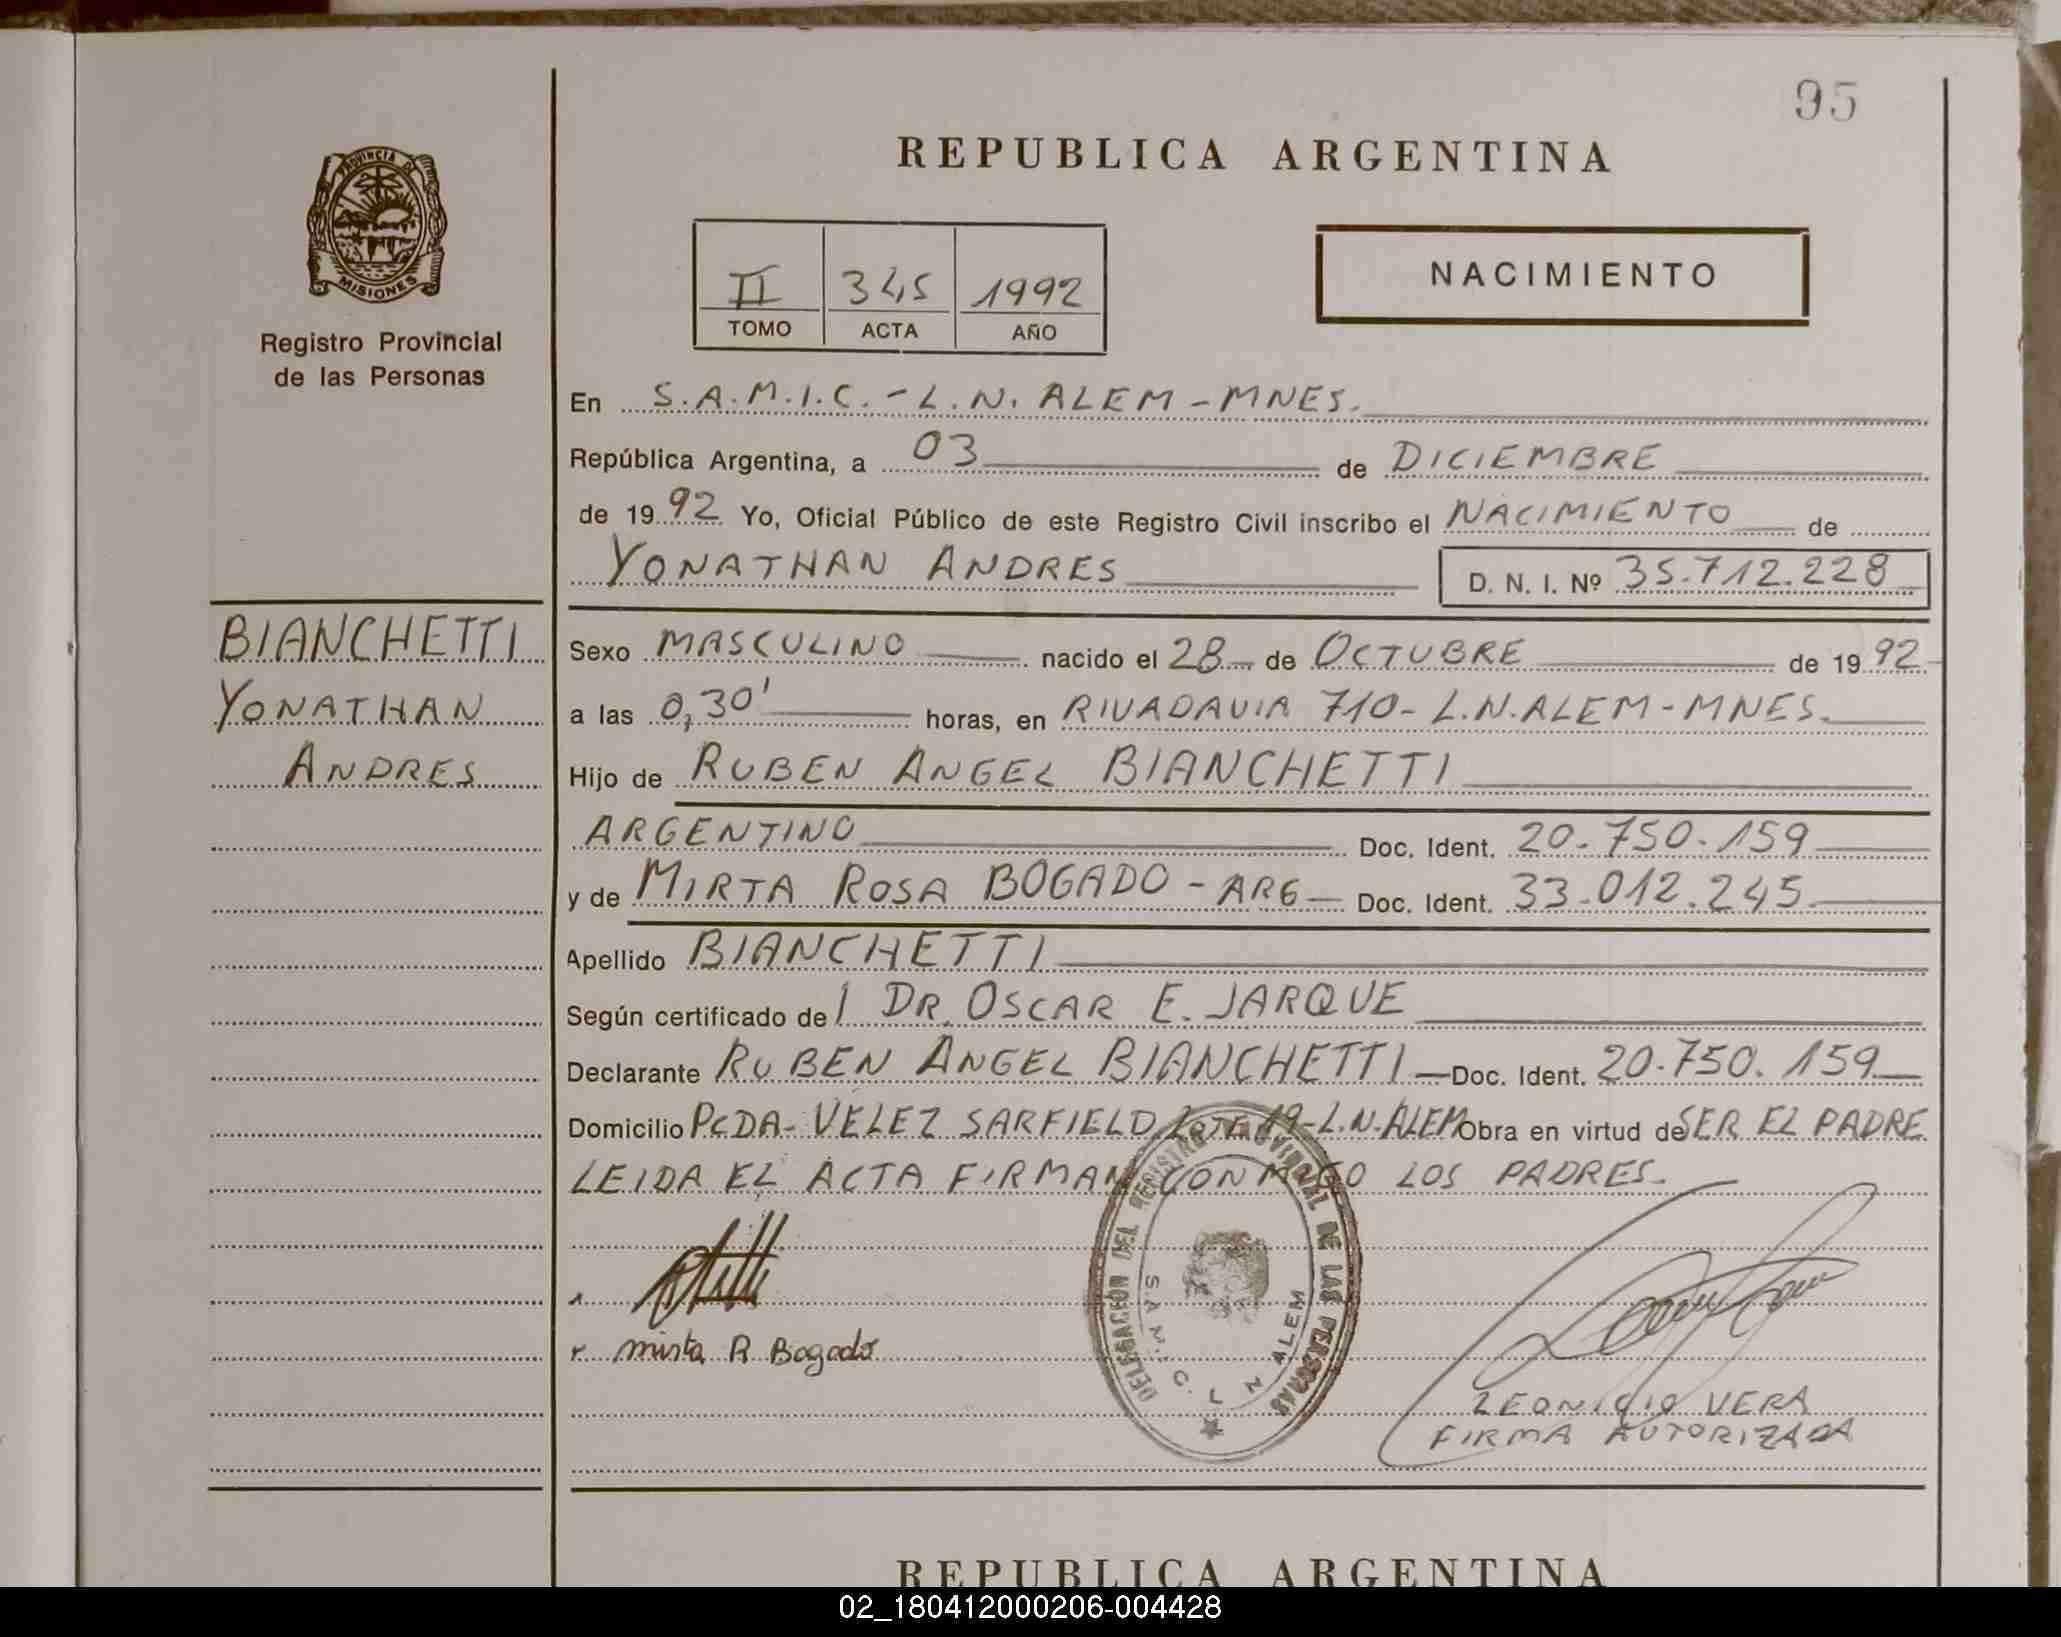 95
REPUBLICA ARGENTINA
PROVINCIA DE
MISIONES
Registro Provincial
de las Personas
II 345 1992
TOMO ACTA AÑO
NACIMIENTO
En S.A.M.I.C. - L.N. ALEM - MNES.
República Argentina, a 03 de DICIEMBRE
de 1992 Yo, Oficial Público de este Registro Civil inscribo el NACIMIENTO de
YONATHAN ANDRES D. N. I. Nº 35.712.228
BIANCHETTI
YONATHAN
ANDRES
Sexo MASCULINO nacido el 28 de OCTUBRE de 1992
a las 0,30' horas, en RIVADAVIA 710 - L.N. ALEM - MNES.
Hijo de RUBEN ANGEL BIANCHETTI
ARGENTINO Doc. Ident. 20.750.159
y de MIRTA ROSA BOGADO - ARG Doc. Ident. 33.012.245
Apellido BIANCHETTI
Según certificado del DR. OSCAR E. JARQUE
Declarante RUBEN ANGEL BIANCHETTI Doc. Ident. 20.750.159
Domicilio PCDA - VELEZ SARFIELD LOTE 19 - L.N. ALEM Obra en virtud de SER EL PADRE
LEIDA EL ACTA FIRMAN CONMIGO LOS PADRES.
mirta R Bogado
DELEGACION DEL REGISTRO PROVINCIAL DE LAS PERSONAS
S.A.M.I.C. L N ALEM
LEONICIO VERA
FIRMA AUTORIZADA
REPUBLICA ARGENTINA
02_180412000206-004428